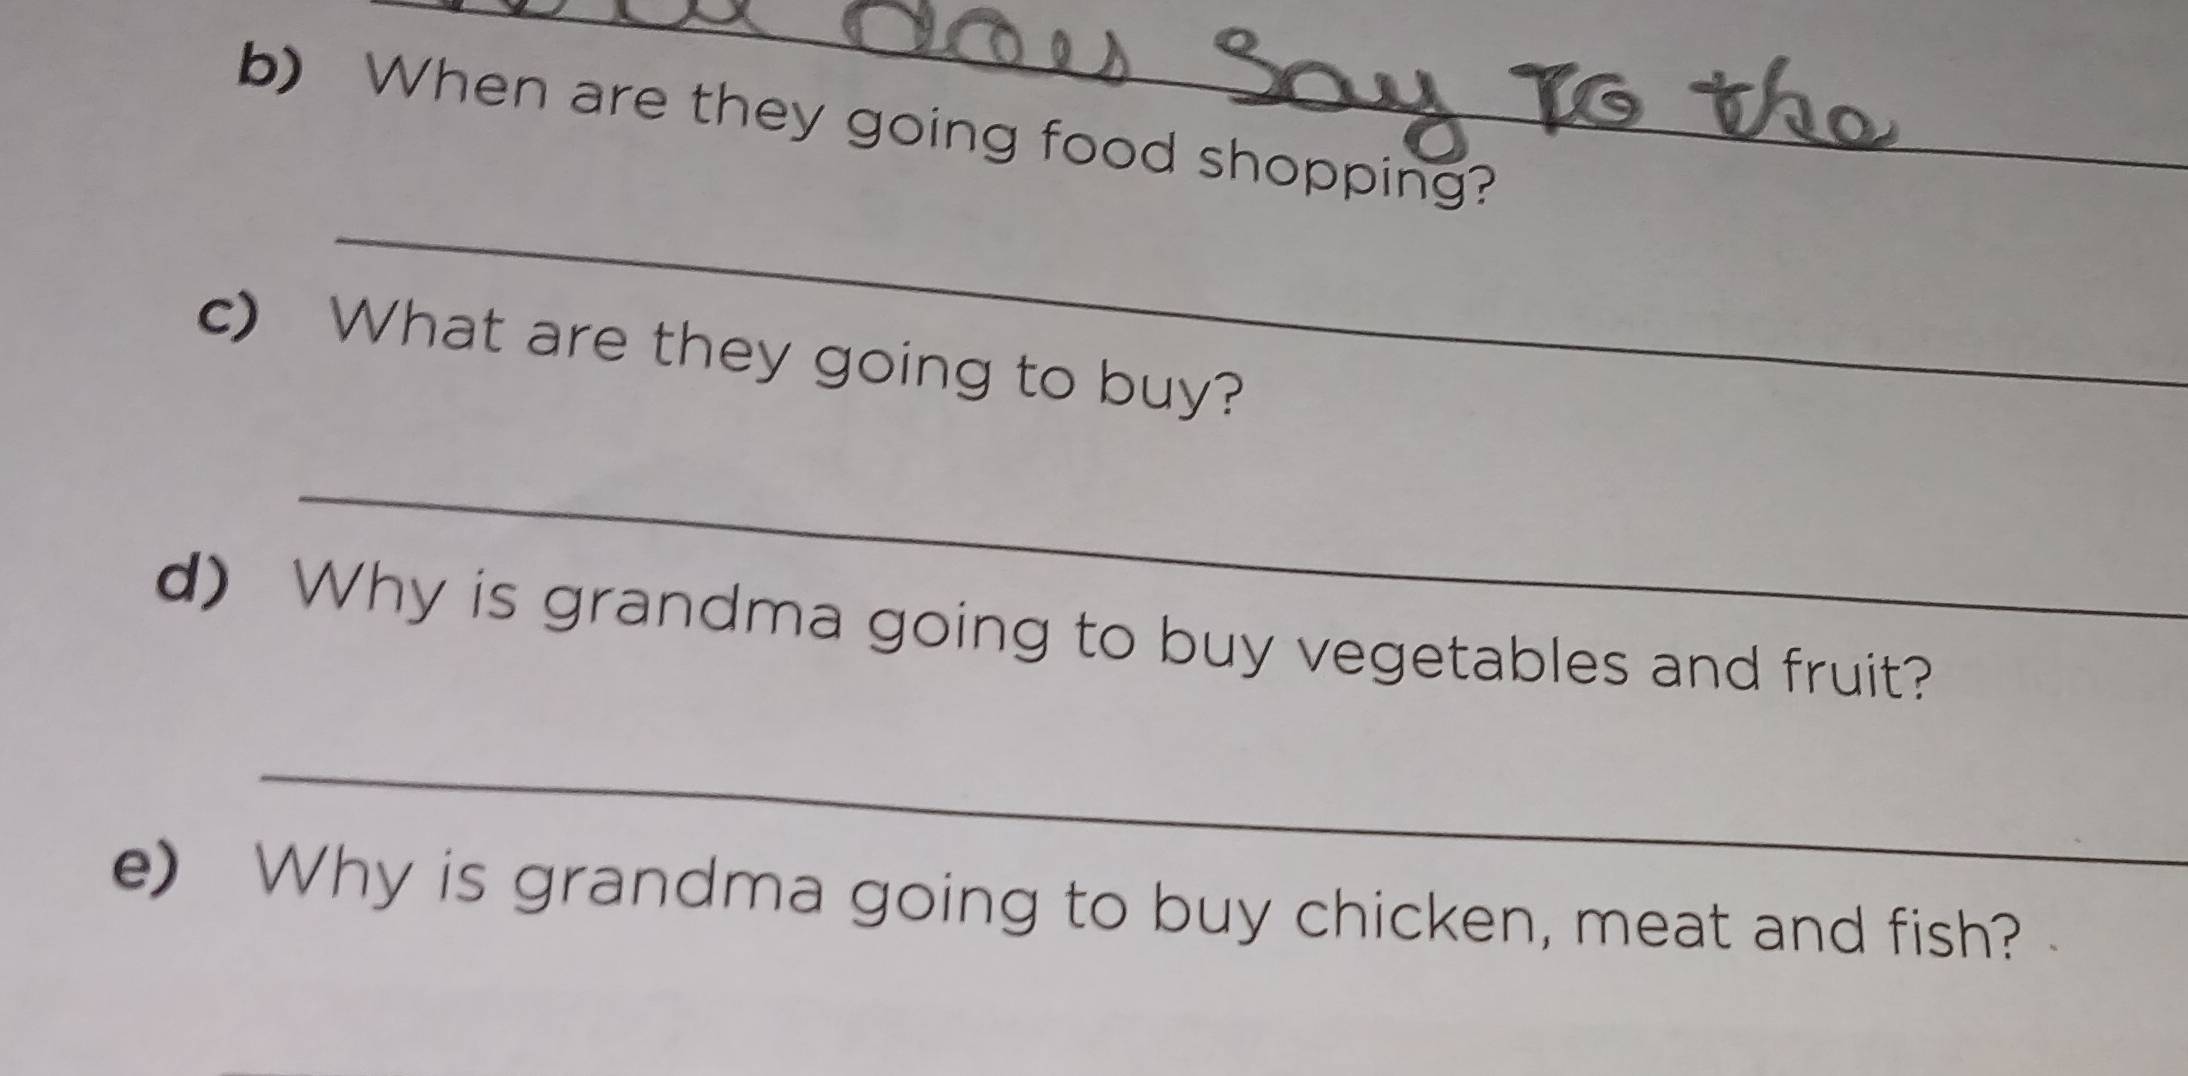 does say to the
b) When are they going food shopping?
c) What are they going to buy?
d) Why is grandma going to buy vegetables and fruit?
e) Why is grandma going to buy chicken, meat and fish?